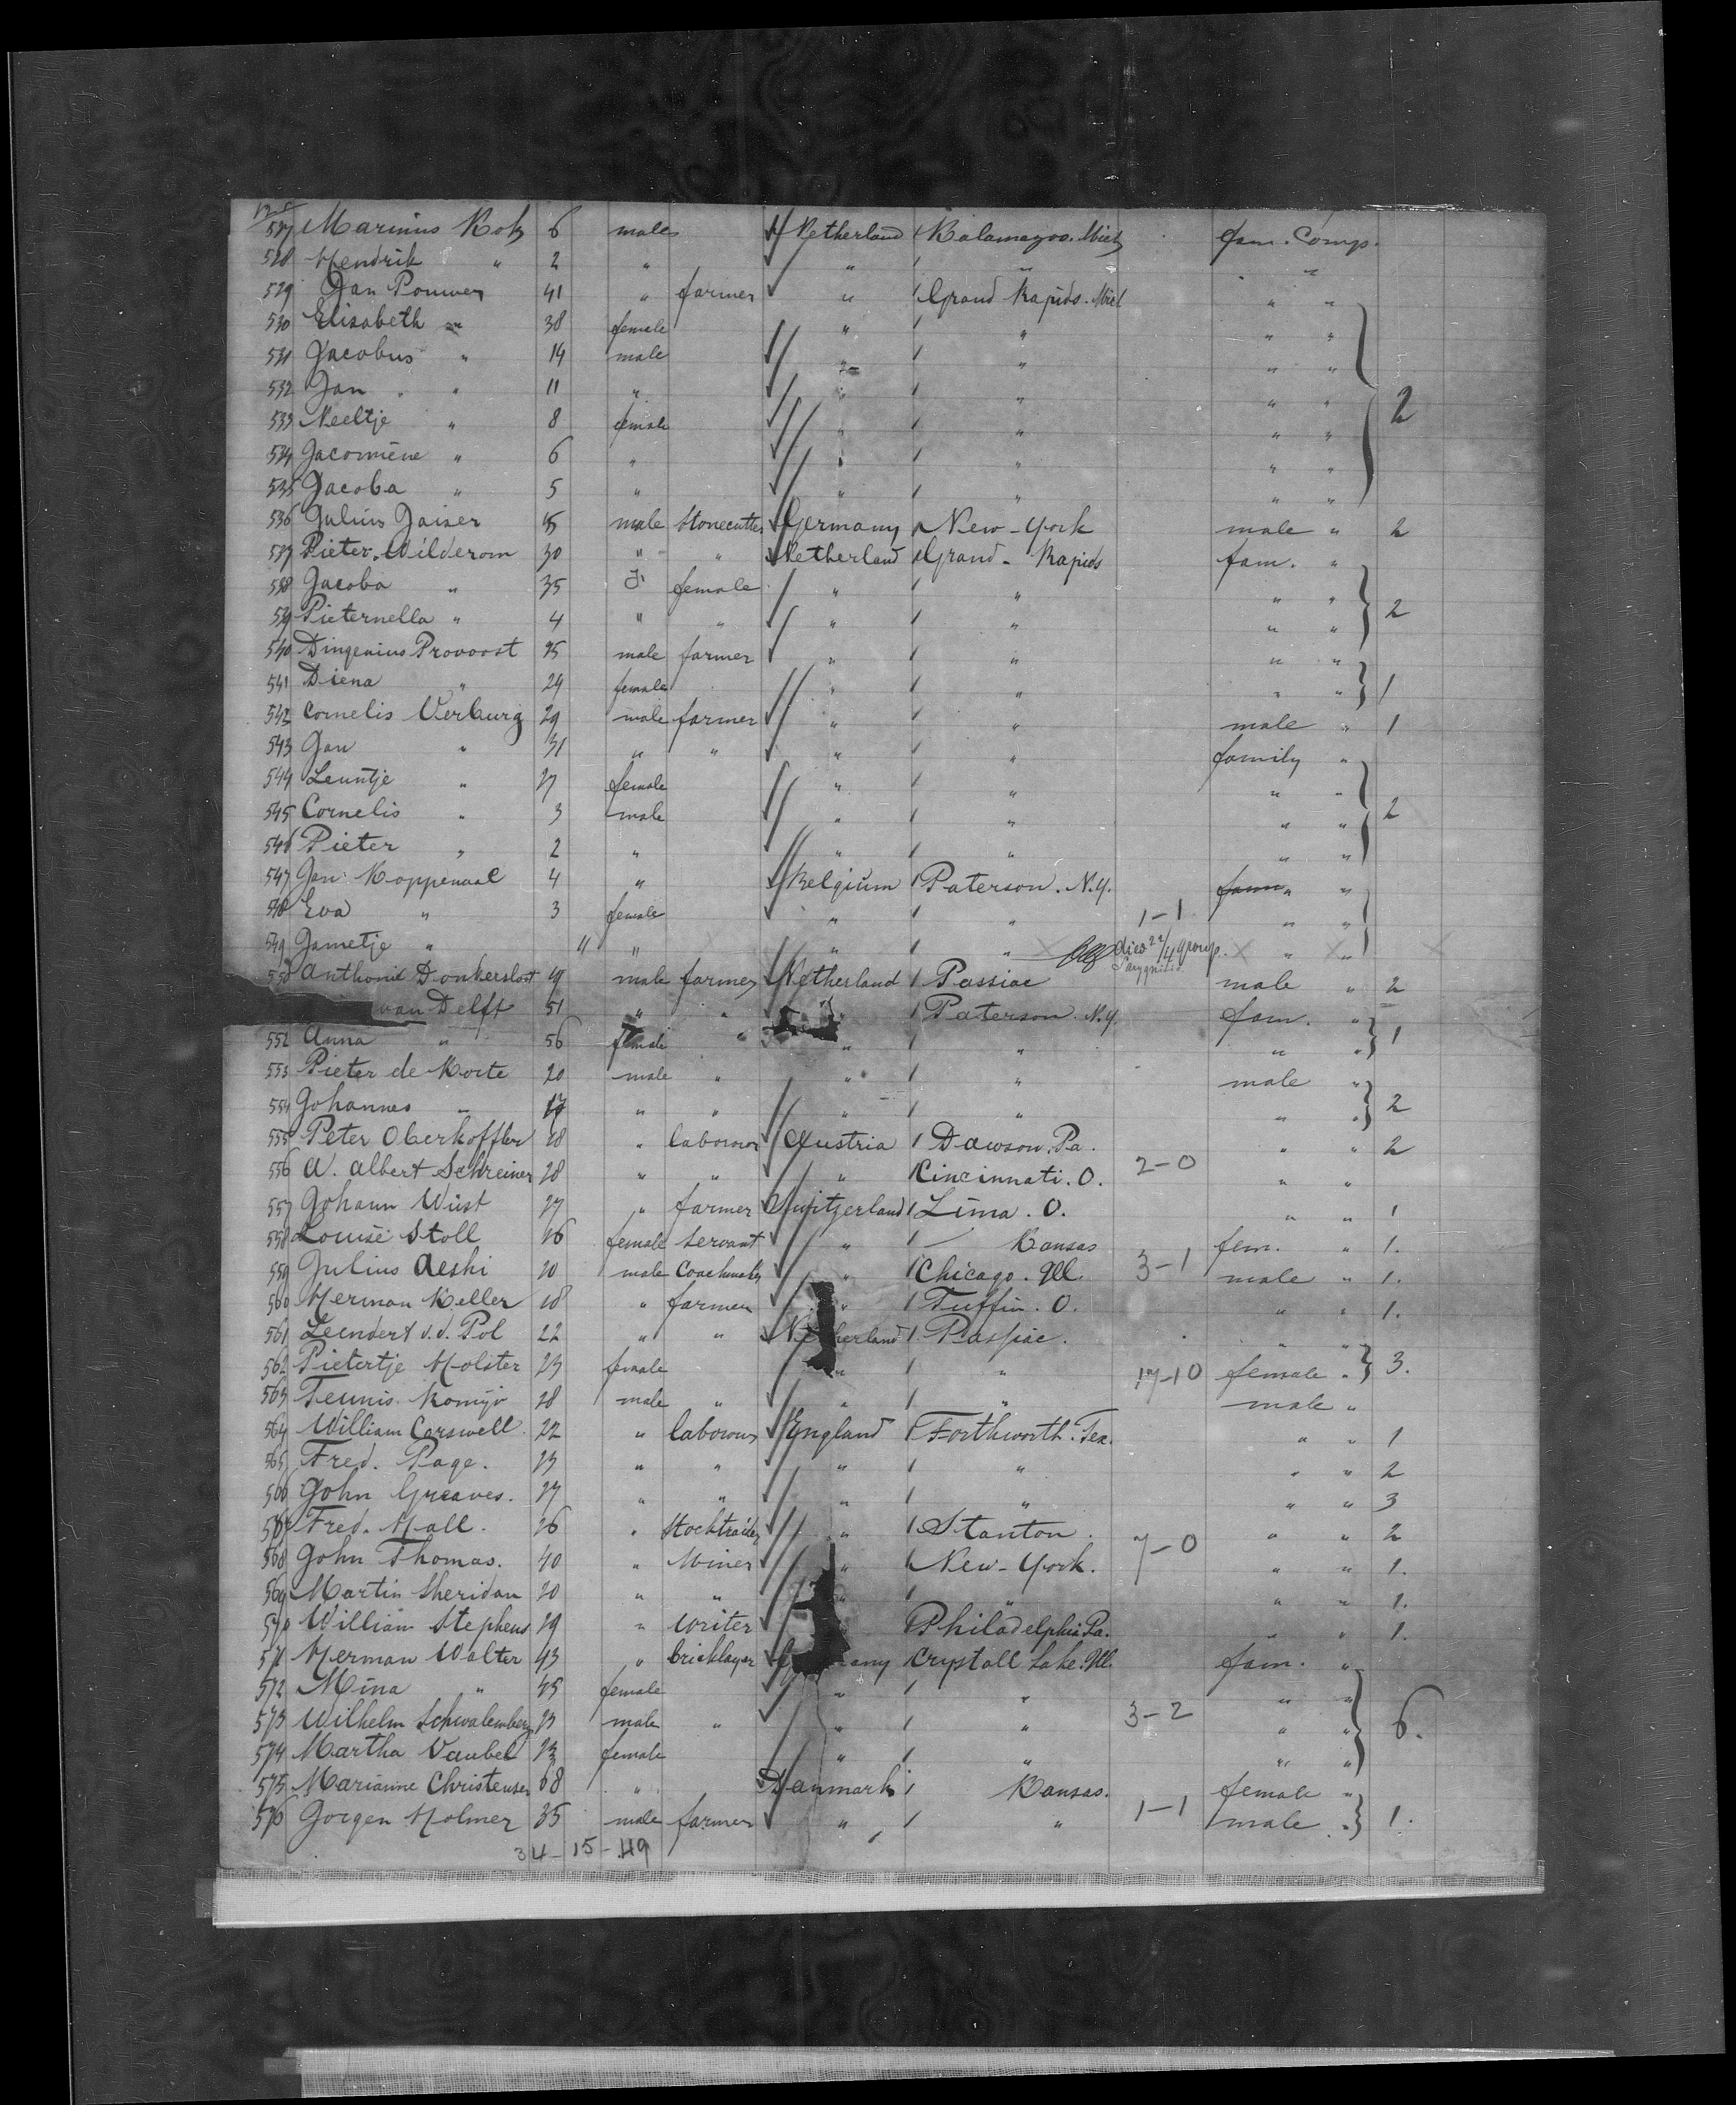 527 Marinus Kotz 6 male Netherland Kalamazoo. Mich fam. Comp.
528 Hendrik " 2 " " " " "
529 Jan Pouwer 41 " farmer " Grand Rapids. Mich " "
530 Elisabeth " 38 female " " " "
531 Jacobus " 14 male " " " "
532 Jan " 11 " " " " " 2
533 Neeltje " 8 female " " " "
534 Jacomiene " 6 " " " " "
535 Jacoba " 5 " " " " "
536 Julius Gaiser 45 male Stonecutter Germany New-York male " 2
537 Pieter Wilderom 30 " " Netherland Grand-Rapids fam. "
538 Jacoba " 35 female " " " "
539 Pieternella " 4 " " " " " " 2
540 Dingenius Provoost 25 male farmer " " " "
541 Diena " 24 female " " " " 1
542 Cornelis Verburg 29 male farmer " " male " 1
543 Jan " 31 " " " " family "
544 Leuntje " 27 female " " " "
545 Cornelis " 3 male " " " " 2
546 Pieter " 2 " " " " "
547 Jan Koppenaal 4 " Belgium Paterson. N.Y. fam " "
548 Eva " 3 female " " 1-1 " "
549 Jametje " 11 " " " died 22/4 group. " "
550 Anthonie Donkersloot 19 male farmer Netherland Passiac male " 2
van Delft 51 " " " Paterson. N.Y. fam. "
552 Anna " 56 female " " " " " 1
553 Pieter de Korte 20 male " " " male "
554 Johannes " 17 " " " " " " 2
555 Peter Oberhoffler 28 " labourer Austria Dawson. Pa. " " 2
556 A. Albert Schreiner 28 " " " Cincinnati. O. 2-0 " "
557 Johann Wüst 27 " farmer Switzerland Lima. O. " " 1
558 Louise Stoll 26 female Servant " Kansas fem. " 1.
559 Julius Aeshi 20 male Coachmaker " Chicago. Ill. 3-1 male " 1.
560 Herman Keller 28 " farmer " Tuffin. O. " " 1.
561 Leendert v.d. Pol 22 " " Netherland Passiac. " "
562 Pietertje Holster 23 female " " 17-10 female " 3.
563 Teunis Komijs 28 male " " " male "
564 William Carswell 22 " labourer England Forthworth. Tex. " " 1
565 Fred. Page. 23 " " " " " " 2
566 John Greaves. 27 " " " " " " 3
567 Fred. Hall. 26 " Stocktrader " Stanton. " " 2
568 John Thomas. 40 " Miner " New-York. 7-0 " " 1.
569 Martin Sheridan 20 " " " " " " 1.
570 William Stephens 29 " Writer Philadelphia Pa. " " 1.
571 Herman Walter 43 " bricklayer Germany Crystall Lake. Ill. fam. "
572 Mina " 45 female " " " "
573 Wilhelm Schwalemberg 23 male " " " 3-2 " " 6.
574 Martha Vaubel 23 female " " " "
575 Marianne Christensen 68 " Danmark Kansas. female "
576 Jorgen Holmer 35 male farmer " " 1-1 male " 1.
34-15-49